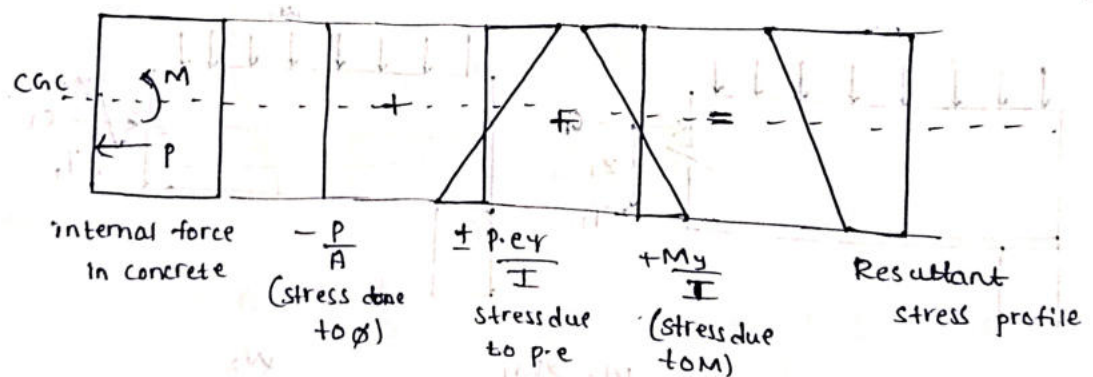 CGC
M
P
+
+
=
internal force
in concrete
- P/A
(stress due
to
± p.ey/I
stress due
to p.e
+My/I
(stress due
to M)
Resultant
stress profile